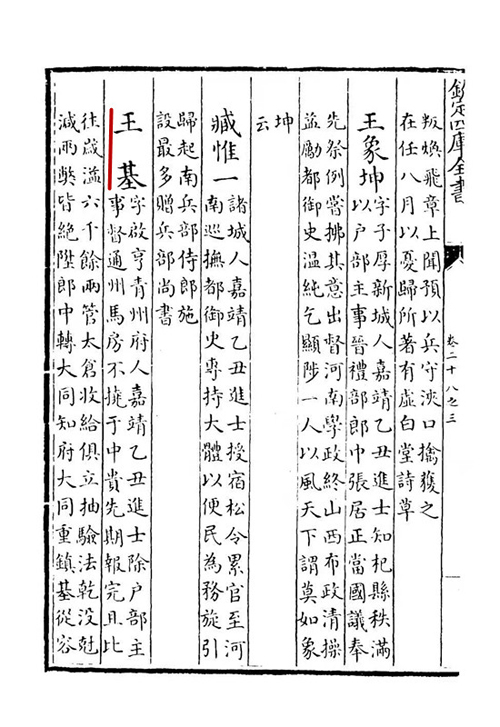 欽定四庫全書
卷二十八之三
叛煥飛章上聞預以兵守浹口擒獲之
在任八月以憂歸所著有虛白堂詩草
王象坤字子厚新城人嘉靖乙丑進士知杞縣秩滿
以戶部主事晉禮部郎中張居正當國議奉
先祭例嘗挑其意出督河南學政終山西布政清操
益勵都御史溫純乞顯陟一人以風天下謂莫如象
坤
云
臧惟一諸城人嘉靖乙丑進士授宿松令累官至河
南巡撫都御史專持大體以便民為務旋引
歸起南兵部侍郎施
設最多贈兵部尚書
王基字啟亨青州府人嘉靖乙丑進士除戶部主
事督通州馬房不擾于中貴先期報完且比
往歲溢六千餘兩管太倉收給俱立抽驗法乾没尅
減兩獘皆絶陞郎中轉大同知府大同重鎮基從容